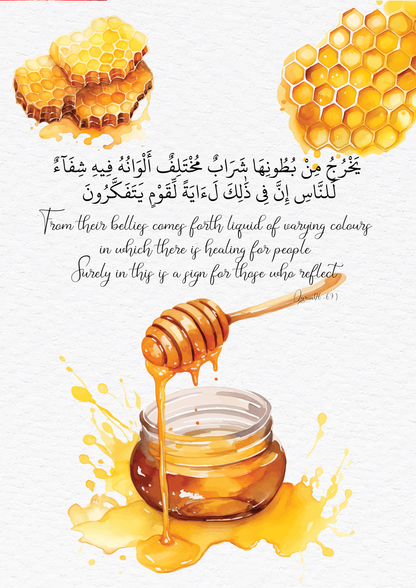 يَخْرُجُ مِنْ بُطُونِهَا شَرَابٌ مُخْتَلِفٌ أَلْوَانُهُ فِيهِ شِفَآءٌ
لِّلنَّاسِ إِنَّ فِى ذَٰلِكَ لَـَٔايَةً لِّقَوْمٍ يَتَفَكَّرُونَ
From their bellies comes forth liquid of varying colours
in which there is healing for people
Surely in this is a sign for those who reflect